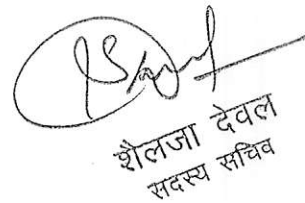 शैलजा देवल
सदस्य सचिव